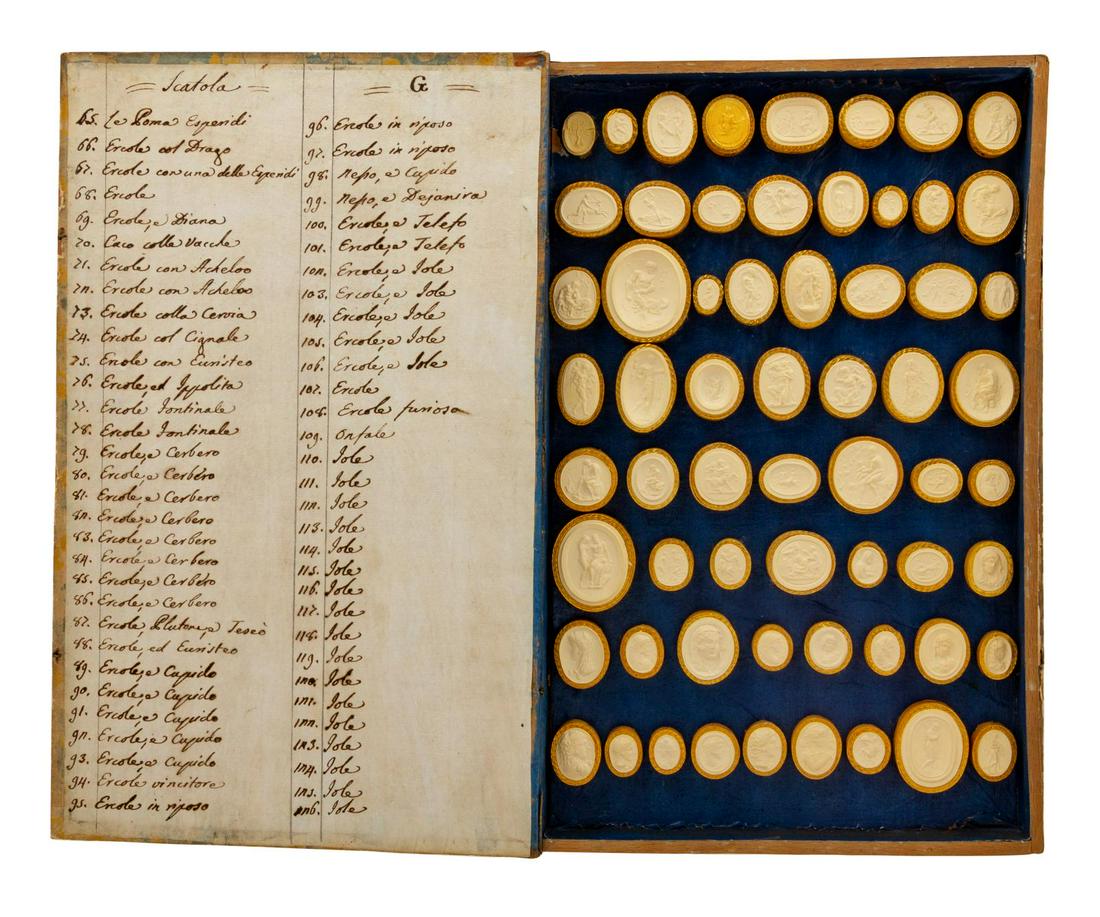 Scatola
65. Le Poma Esperidi
66. Ercole col Drago
67. Ercole con una delle Esperidi
68. Ercole
69. Ercole, e Diana
70. Caco colle Vacche
71. Ercole con Acheloo
72. Ercole con Acheloo
73. Ercole colla Cervia
74. Ercole col Cignale
75. Ercole con Euristeo
76. Ercole, ed Ippolita
77. Ercole Fontinale
78. Ercole Fontinale
79. Ercole, e Cerbero
80. Ercole, e Cerbero
81. Ercole, e Cerbero
82. Ercole, e Cerbero
83. Ercole, e Cerbero
84. Ercole, e Cerbero
85. Ercole, e Cerbero
86. Ercole, e Cerbero
87. Ercole, Plutone, e Teseo
88. Ercole, ed Euristeo
89. Ercole, e Cupido
90. Ercole, e Cupido
91. Ercole, e Cupido
92. Ercole, e Cupido
93. Ercole, e Cupido
94. Ercole vincitore
95. Ercole in riposo
G
96. Ercole in riposo
97. Ercole in riposo
98. Nesso, e Cupido
99. Nesso, e Dejanira
100. Ercole, e Telefo
101. Ercole, e Telefo
102. Ercole, e Iole
103. Ercole, e Iole
104. Ercole, e Iole
105. Ercole, e Iole
106. Ercole, e Iole
107. Ercole
108. Ercole furioso
109. Onfale
110. Iole
111. Iole
112. Iole
113. Iole
114. Iole
115. Iole
116. Iole
117. Iole
118. Iole
119. Iole
120. Iole
121. Iole
122. Iole
123. Iole
124. Iole
125. Iole
126. Iole